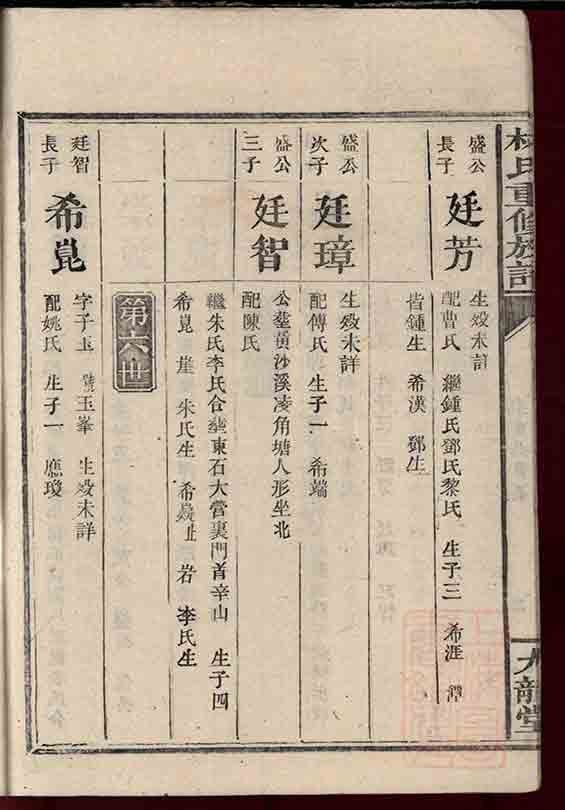 林氏重修族譜
九龍堂
盛公
長子
廷芳
生歿未詳
配曹氏 繼鍾氏鄧氏黎氏 生子三 希涯 潭
皆鍾生 希漢 鄧生
盛公
次子
廷璋
生歿未詳
配傅氏 生子一 希端
盛公
三子
廷智
公塟黃沙溪凌角塘人形坐北
配陳氏
繼朱氏李氏合塟東石大營裏門首辛山 生子四
希崑 崖 朱氏生 希 岩 李氏生
第六世
廷智
長子
希崑
字子玉 號玉峯 生歿未詳
配姚氏 生子一 應瓊